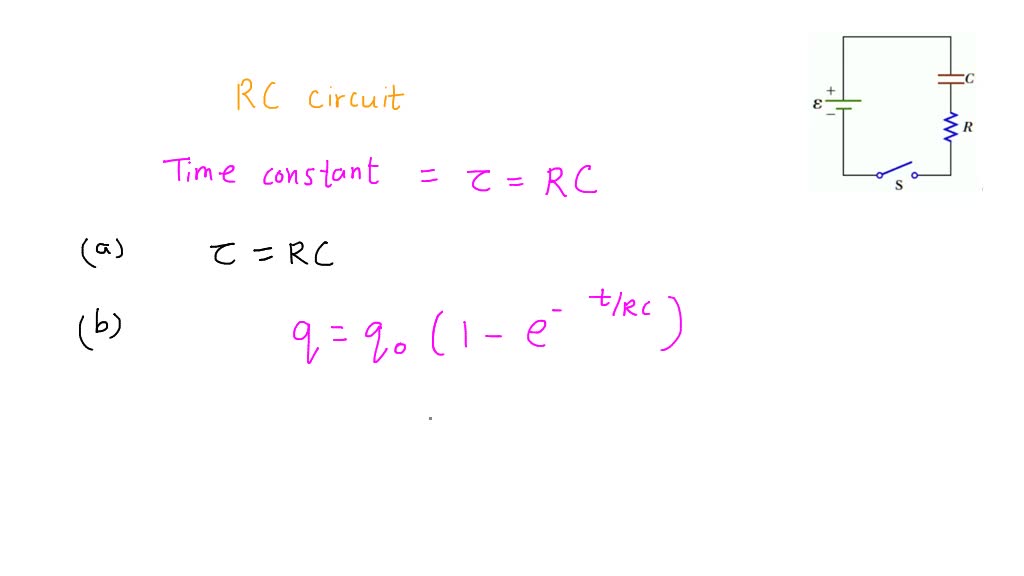 RC circuit
Time constant = τ = RC
(a) τ = RC
(b) q = q₀ ( 1 - e^- t/RC )
+
ε
-
C
R
S